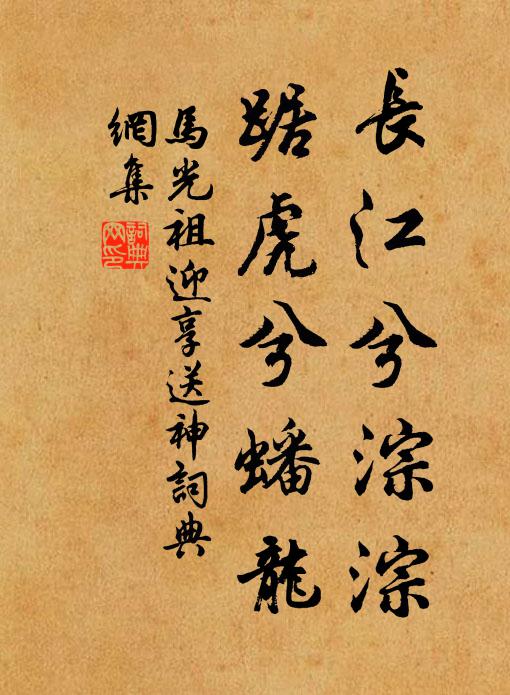 長江兮淙淙
踞虎兮蟠龍
馬光祖迎享送神詞典
網集
詞典
網印